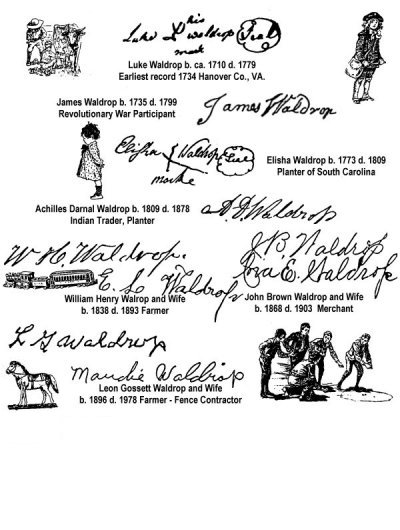 his
Luke L Waldrop Seal
mark
Luke Waldrop b. ca. 1710 d. 1779
Earliest record 1734 Hanover Co., VA.
James Waldrop b. 1735 d. 1799
Revolutionary War Participant
James Waldrop
Elisha Waldrop Seal
marke
Elisha Waldrop b. 1773 d. 1809
Planter of South Carolina
Achilles Darnal Waldrop b. 1809 d. 1878
Indian Trader, Planter
A. D. Waldrop
W H. Waldrop.
E. Waldrop
William Henry Walrop and Wife
b. 1838 d. 1893 Farmer
J. B. Waldrop
E. Waldrop
John Brown Waldrop and Wife
b. 1868 d. 1903 Merchant
L G Waldrop
Maudie Waldrop
Leon Gossett Waldrop and Wife
b. 1896 d. 1978 Farmer - Fence Contractor